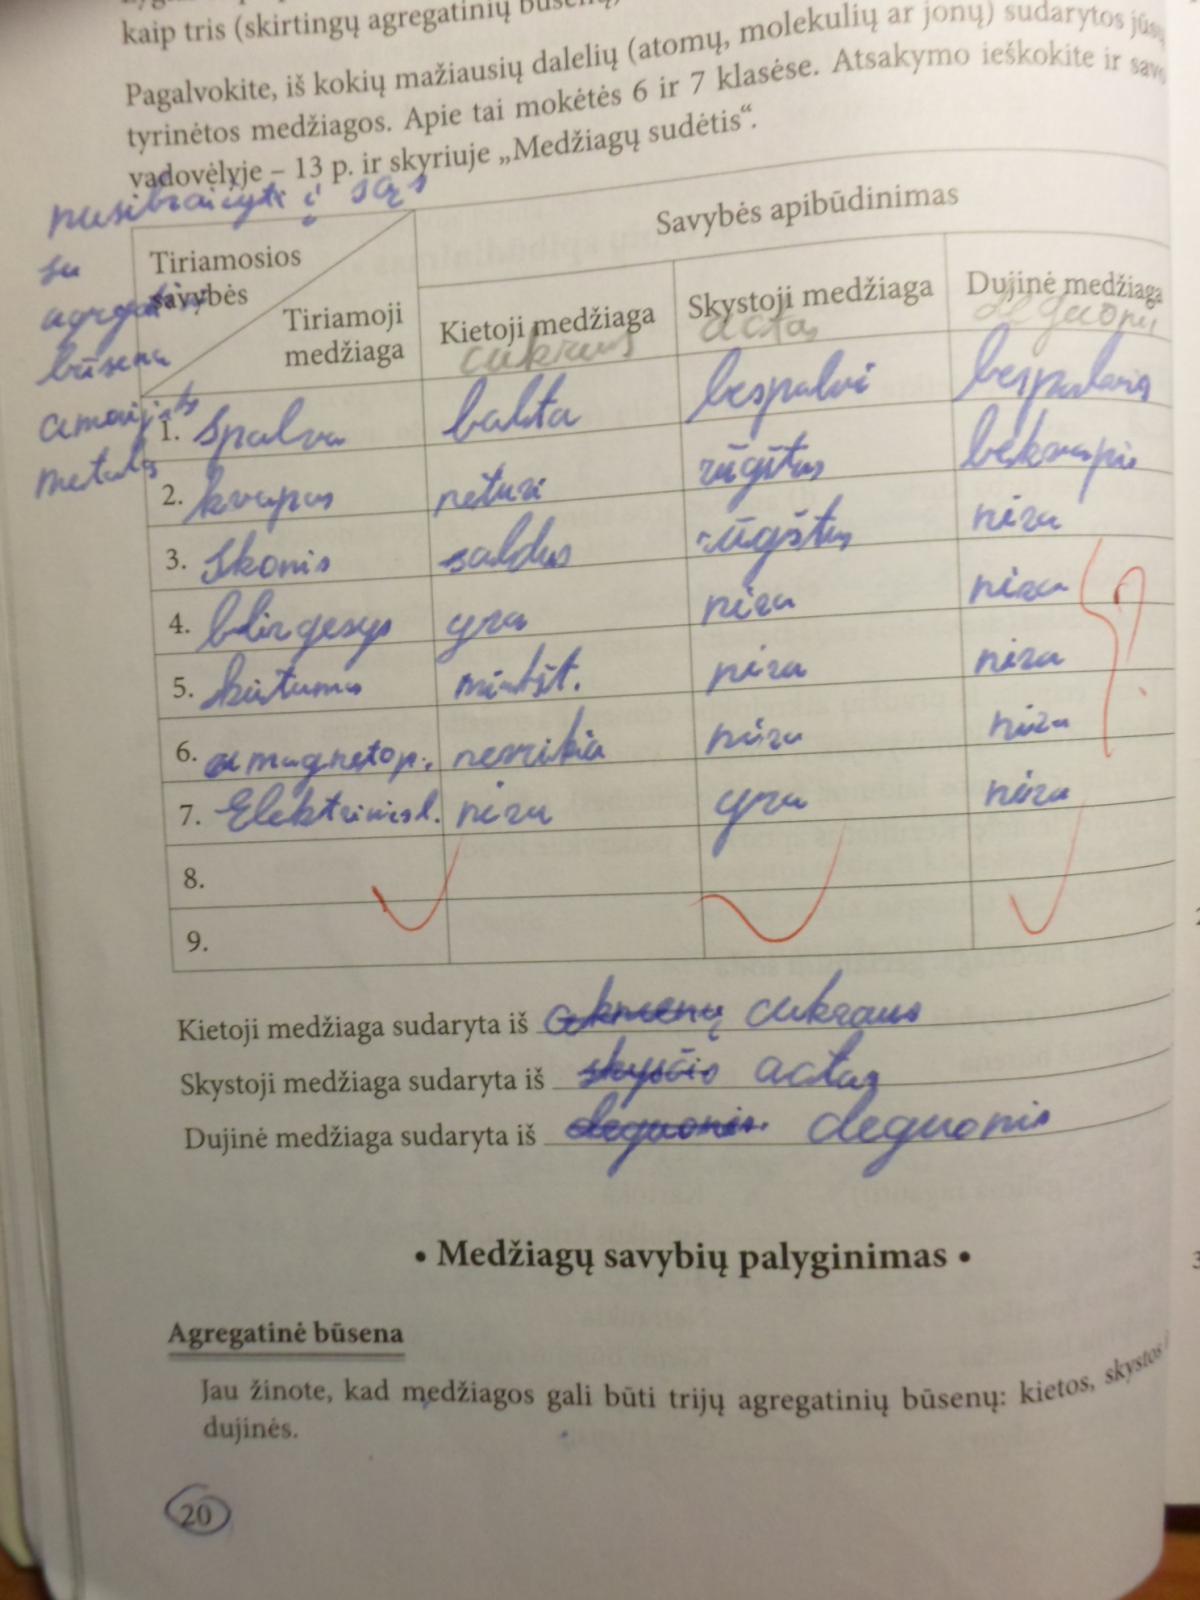 kaip tris (skirtingų agregatinių būsenų)
Pagalvokite, iš kokių mažiausių dalelių (atomų, molekulių ar jonų) sudarytos jūsų
tyrinėtos medžiagos. Apie tai mokėtės 6 ir 7 klasėse. Atsakymo ieškokite ir savo
vadovėlyje – 13 p. ir skyriuje „Medžiagų sudėtis“.
nusibraižyti į sąs
su
būsena
metalo
Tiriamosios savybės
Tiriamoji medžiaga
Savybės apibūdinimas
Kietoji medžiaga
Skystoji medžiaga
Dujinė medžiaga
cukraus
actas
1. Spalva balta bespalvi bespalvis
2. kvapas neturi rūgštus bekvapis
3. Skonis saldus rūgštus nėra
4. blizgesys yra nėra nėra
5. kietumas minkšt. nėra nėra
6. magnetop. neveikia nėra nėra
7. nėra yra nėra
8.
9.
?
Kietoji medžiaga sudaryta iš cukraus
Skystoji medžiaga sudaryta iš skysčio actas
Dujinė medžiaga sudaryta iš deguonis. deguonis
• Medžiagų savybių palyginimas •
Agregatinė būsena
Jau žinote, kad medžiagos gali būti trijų agregatinių būsenų: kietos, skystos
dujinės.
20